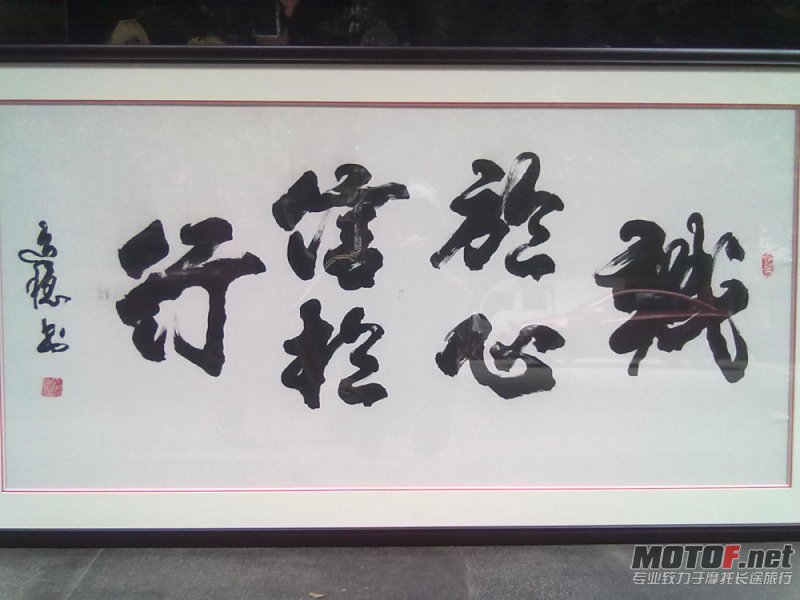 誠
於心
信於
行
MOTOF.net
专业致力于摩托长途旅行